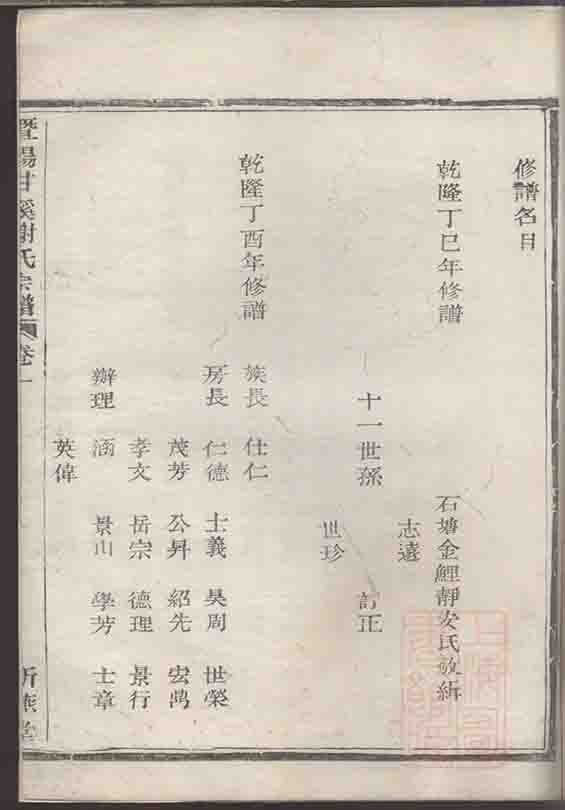 修譜名目
乾隆丁巳年修譜
石塘金鯉靜安氏敬緝
志遠
十一世孫 訂正
世珍
乾隆丁酉年修譜
族長 仕仁
房長 仁德 士義 昊周 世榮
茂芳 公昇 紹先 宏鳿
孝文 岳宗 德理 景行
辦理 涵 景山 學芳 士章
英偉
暨陽甘溪謝氏宗譜 卷一